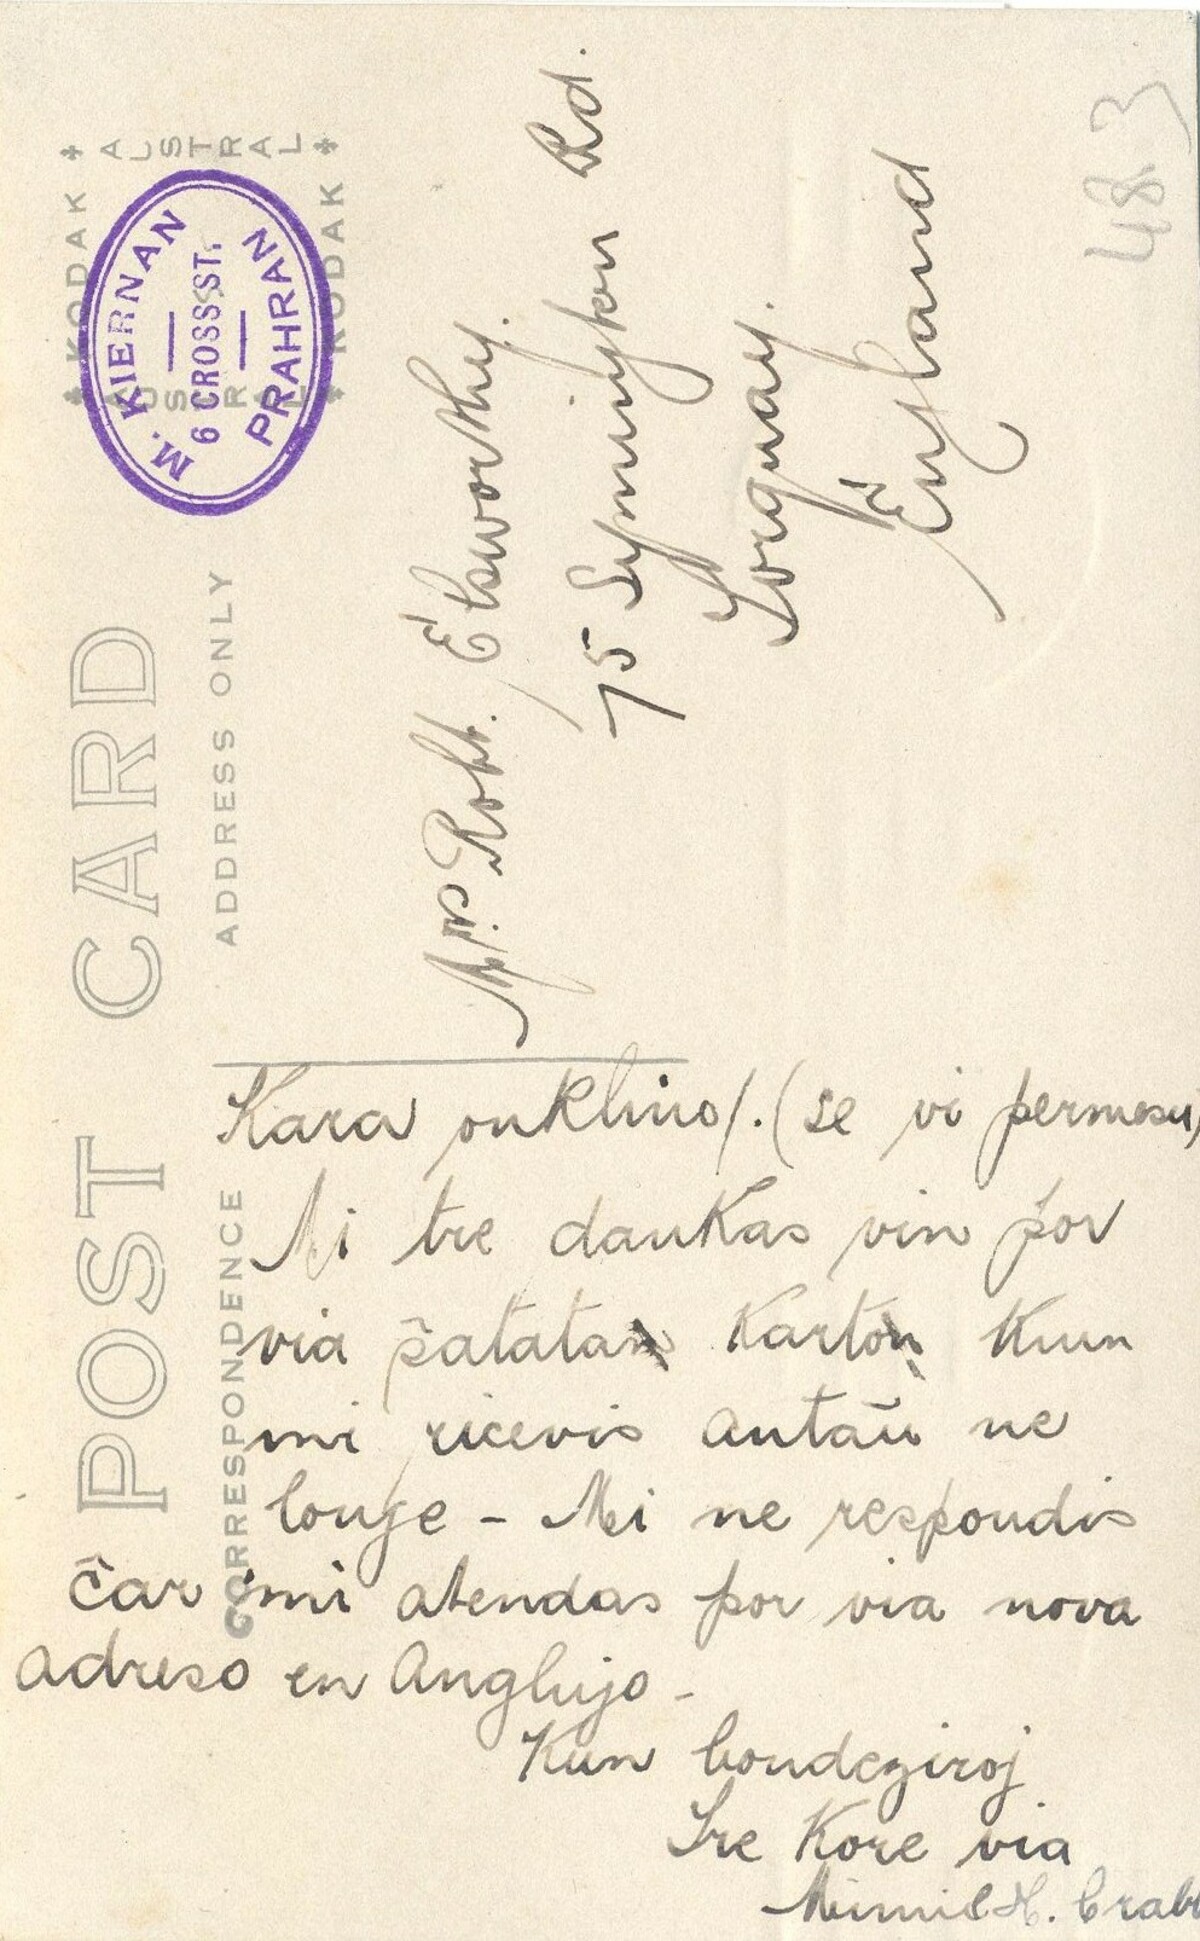 POST CARD
CORRESPONDENCE
ADDRESS ONLY
AUSTRAL
KODAK
KODAK
AUSTRAL
M. KIERNAN
6 CROSS ST.
PRAHRAN
Robt. Elsworthy.
75 Symington Rd.
Torquay.
England
48.3
Kara onklino/. (se vi permesu)
Mi tre dankas vin por
via ŝatata Karto Kiun
mi ricevis antaŭ ne
longe - Mi ne respondis
ĉar mi atendas por via nova
adreso en Anglujo -
Kun bondeziroj
Tre Kore via
H. Crabb